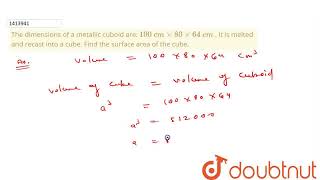 1413941
The dimensions of a metallic cuboid are: 100 cm × 80 × 64 cm . It is melted
and recast into a cube. Find the surface area of the cube.
Volume = 100 × 80 × 64 cm³
volume of cube = volume of cuboid
a³ = 100 × 80 × 64
a³ = 512000
a =
doubtnut